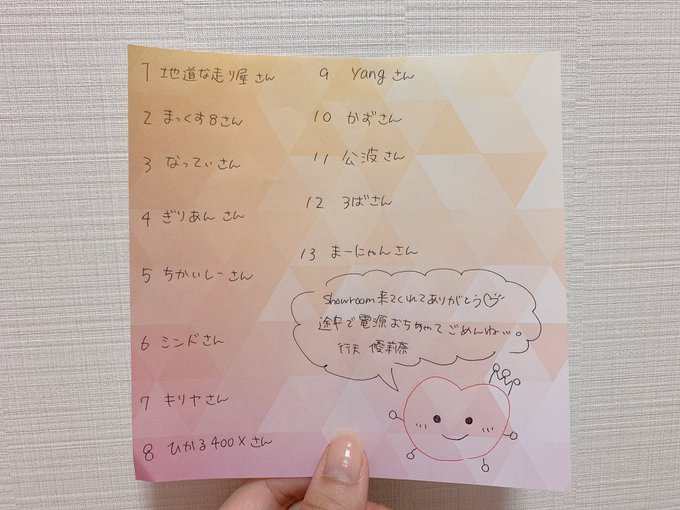 1 地道な走り屋さん
2 まっくす8さん
3 なってぃさん
4 ぎりあんさん
5 ちかいしーさん
6 ミンドさん
7 キリヤさん
8 ひかる400Xさん
9 Yangさん
10 かずさん
11 公波さん
12 3ばさん
13 まーにゃんさん
Showroom来てくれてありがとう♡
途中で電源おちちゃてごめんね…。
行天 優莉奈